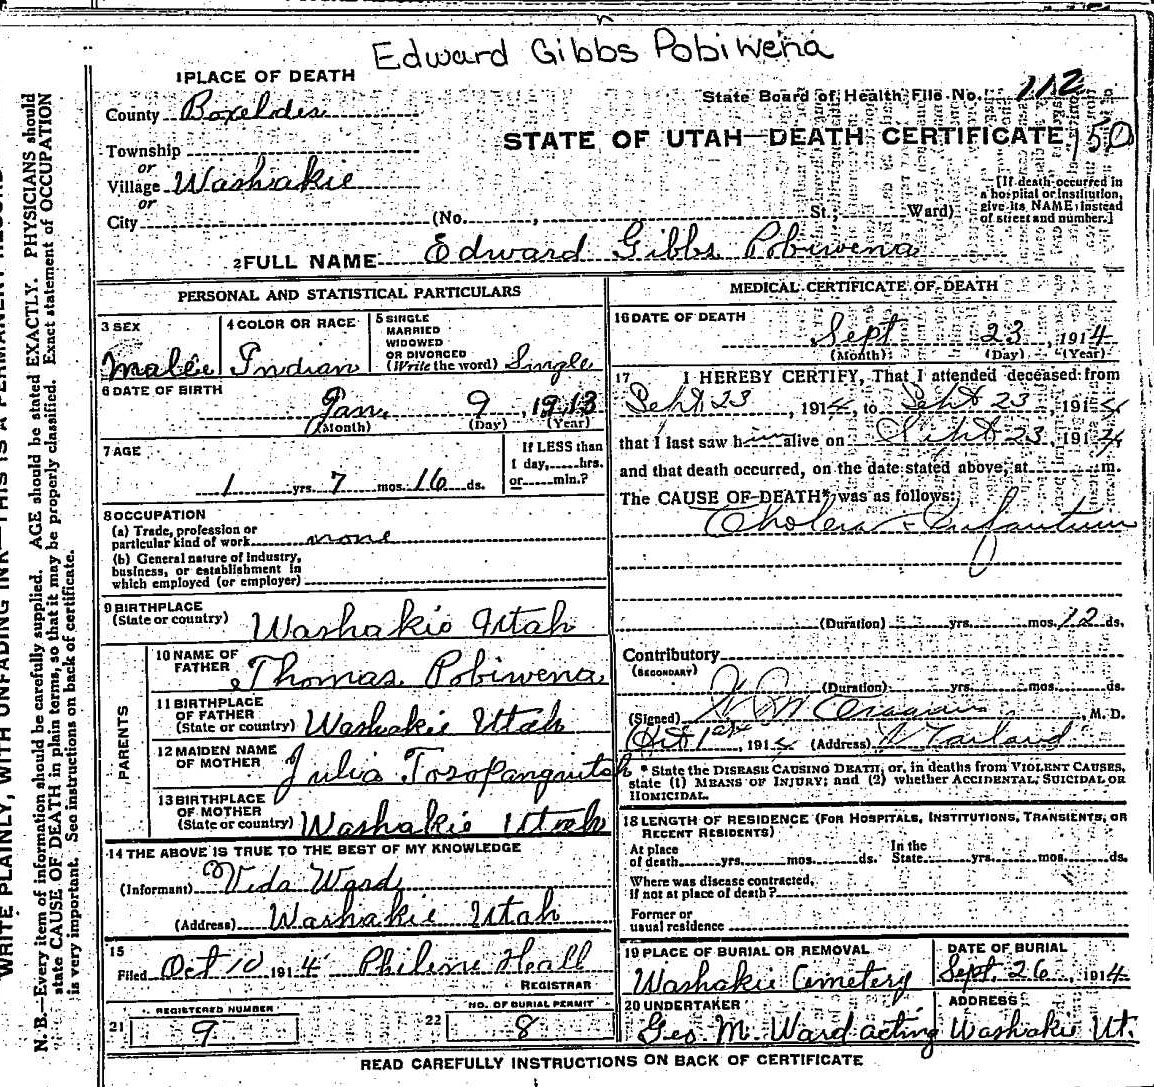 Edward Gibbs Pobiwena
1 PLACE OF DEATH
State Board of Health File No. 112
County Boxelder
STATE OF UTAH—DEATH CERTIFICATE 150
Township
or
Village Washakie
or
[If death occurred in
a hospital or institution,
give its NAME instead
of street and number.]
City (No. , St.; Ward)
2 FULL NAME Edward Gibbs Pobiwena
PERSONAL AND STATISTICAL PARTICULARS
3 SEX
Male
4 COLOR OR RACE
Indian
5 SINGLE
MARRIED
WIDOWED
OR DIVORCED
(Write the word) Single
6 DATE OF BIRTH
Jan. 9, 1913
(Month) (Day) (Year)
7 AGE
1 yrs. 7 mos. 16 ds.
If LESS than
1 day, hrs.
or min.?
8 OCCUPATION
(a) Trade, profession or
particular kind of work none
(b) General nature of industry,
business, or establishment in
which employed (or employer)
9 BIRTHPLACE
(State or country) Washakie Utah
PARENTS
10 NAME OF
FATHER Thomas Pobiwena
11 BIRTHPLACE
OF FATHER
(State or country) Washakie Utah
12 MAIDEN NAME
OF MOTHER Julia
13 BIRTHPLACE
OF MOTHER
(State or country) Washakie Utah
14 THE ABOVE IS TRUE TO THE BEST OF MY KNOWLEDGE
(Informant) Veda Ward
(Address) Washakie Utah
15
Filed Oct 10 1914
REGISTRAR
REGISTERED NUMBER
21 9
NO. OF BURIAL PERMIT
22 8
MEDICAL CERTIFICATE OF DEATH
16 DATE OF DEATH
Sept 23, 1914
(Month) (Day) (Year)
17 I HEREBY CERTIFY, That I attended deceased from
Sept 23, 1914, to Sept 23, 1914
that I last saw him alive on Sept 23, 1914
and that death occurred, on the date stated above, at m.
The CAUSE OF DEATH* was as follows:
Cholera Infantum
(Duration) yrs. mos. 12 ds.
Contributory
(SECONDARY)
(Duration) yrs. mos. ds.
(Signed) , M. D.
Oct 1st, 1914 (Address) Garland
* State the DISEASE CAUSING DEATH, or, in deaths from VIOLENT CAUSES,
state (1) MEANS OF INJURY; and (2) whether ACCIDENTAL, SUICIDAL OR
HOMICIDAL.
18 LENGTH OF RESIDENCE (FOR HOSPITALS, INSTITUTIONS, TRANSIENTS, OR
RECENT RESIDENTS)
At place
of death yrs. mos. ds.
In the
State yrs. mos. ds.
Where was disease contracted,
if not at place of death?
Former or
usual residence
19 PLACE OF BURIAL OR REMOVAL
Washakie Cemetery
DATE OF BURIAL
Sept. 26, 1914
20 UNDERTAKER
Geo. M. Ward acting
ADDRESS
Washakie Ut.
READ CAREFULLY INSTRUCTIONS ON BACK OF CERTIFICATE
WRITE PLAINLY, WITH UNFADING INK—THIS IS A PERMANENT RECORD
N. B.—Every item of information should be carefully supplied. AGE should be stated EXACTLY. PHYSICIANS should
state CAUSE OF DEATH in plain terms, so that it may be properly classified. Exact statement of OCCUPATION
is very important. See instructions on back of certificate.